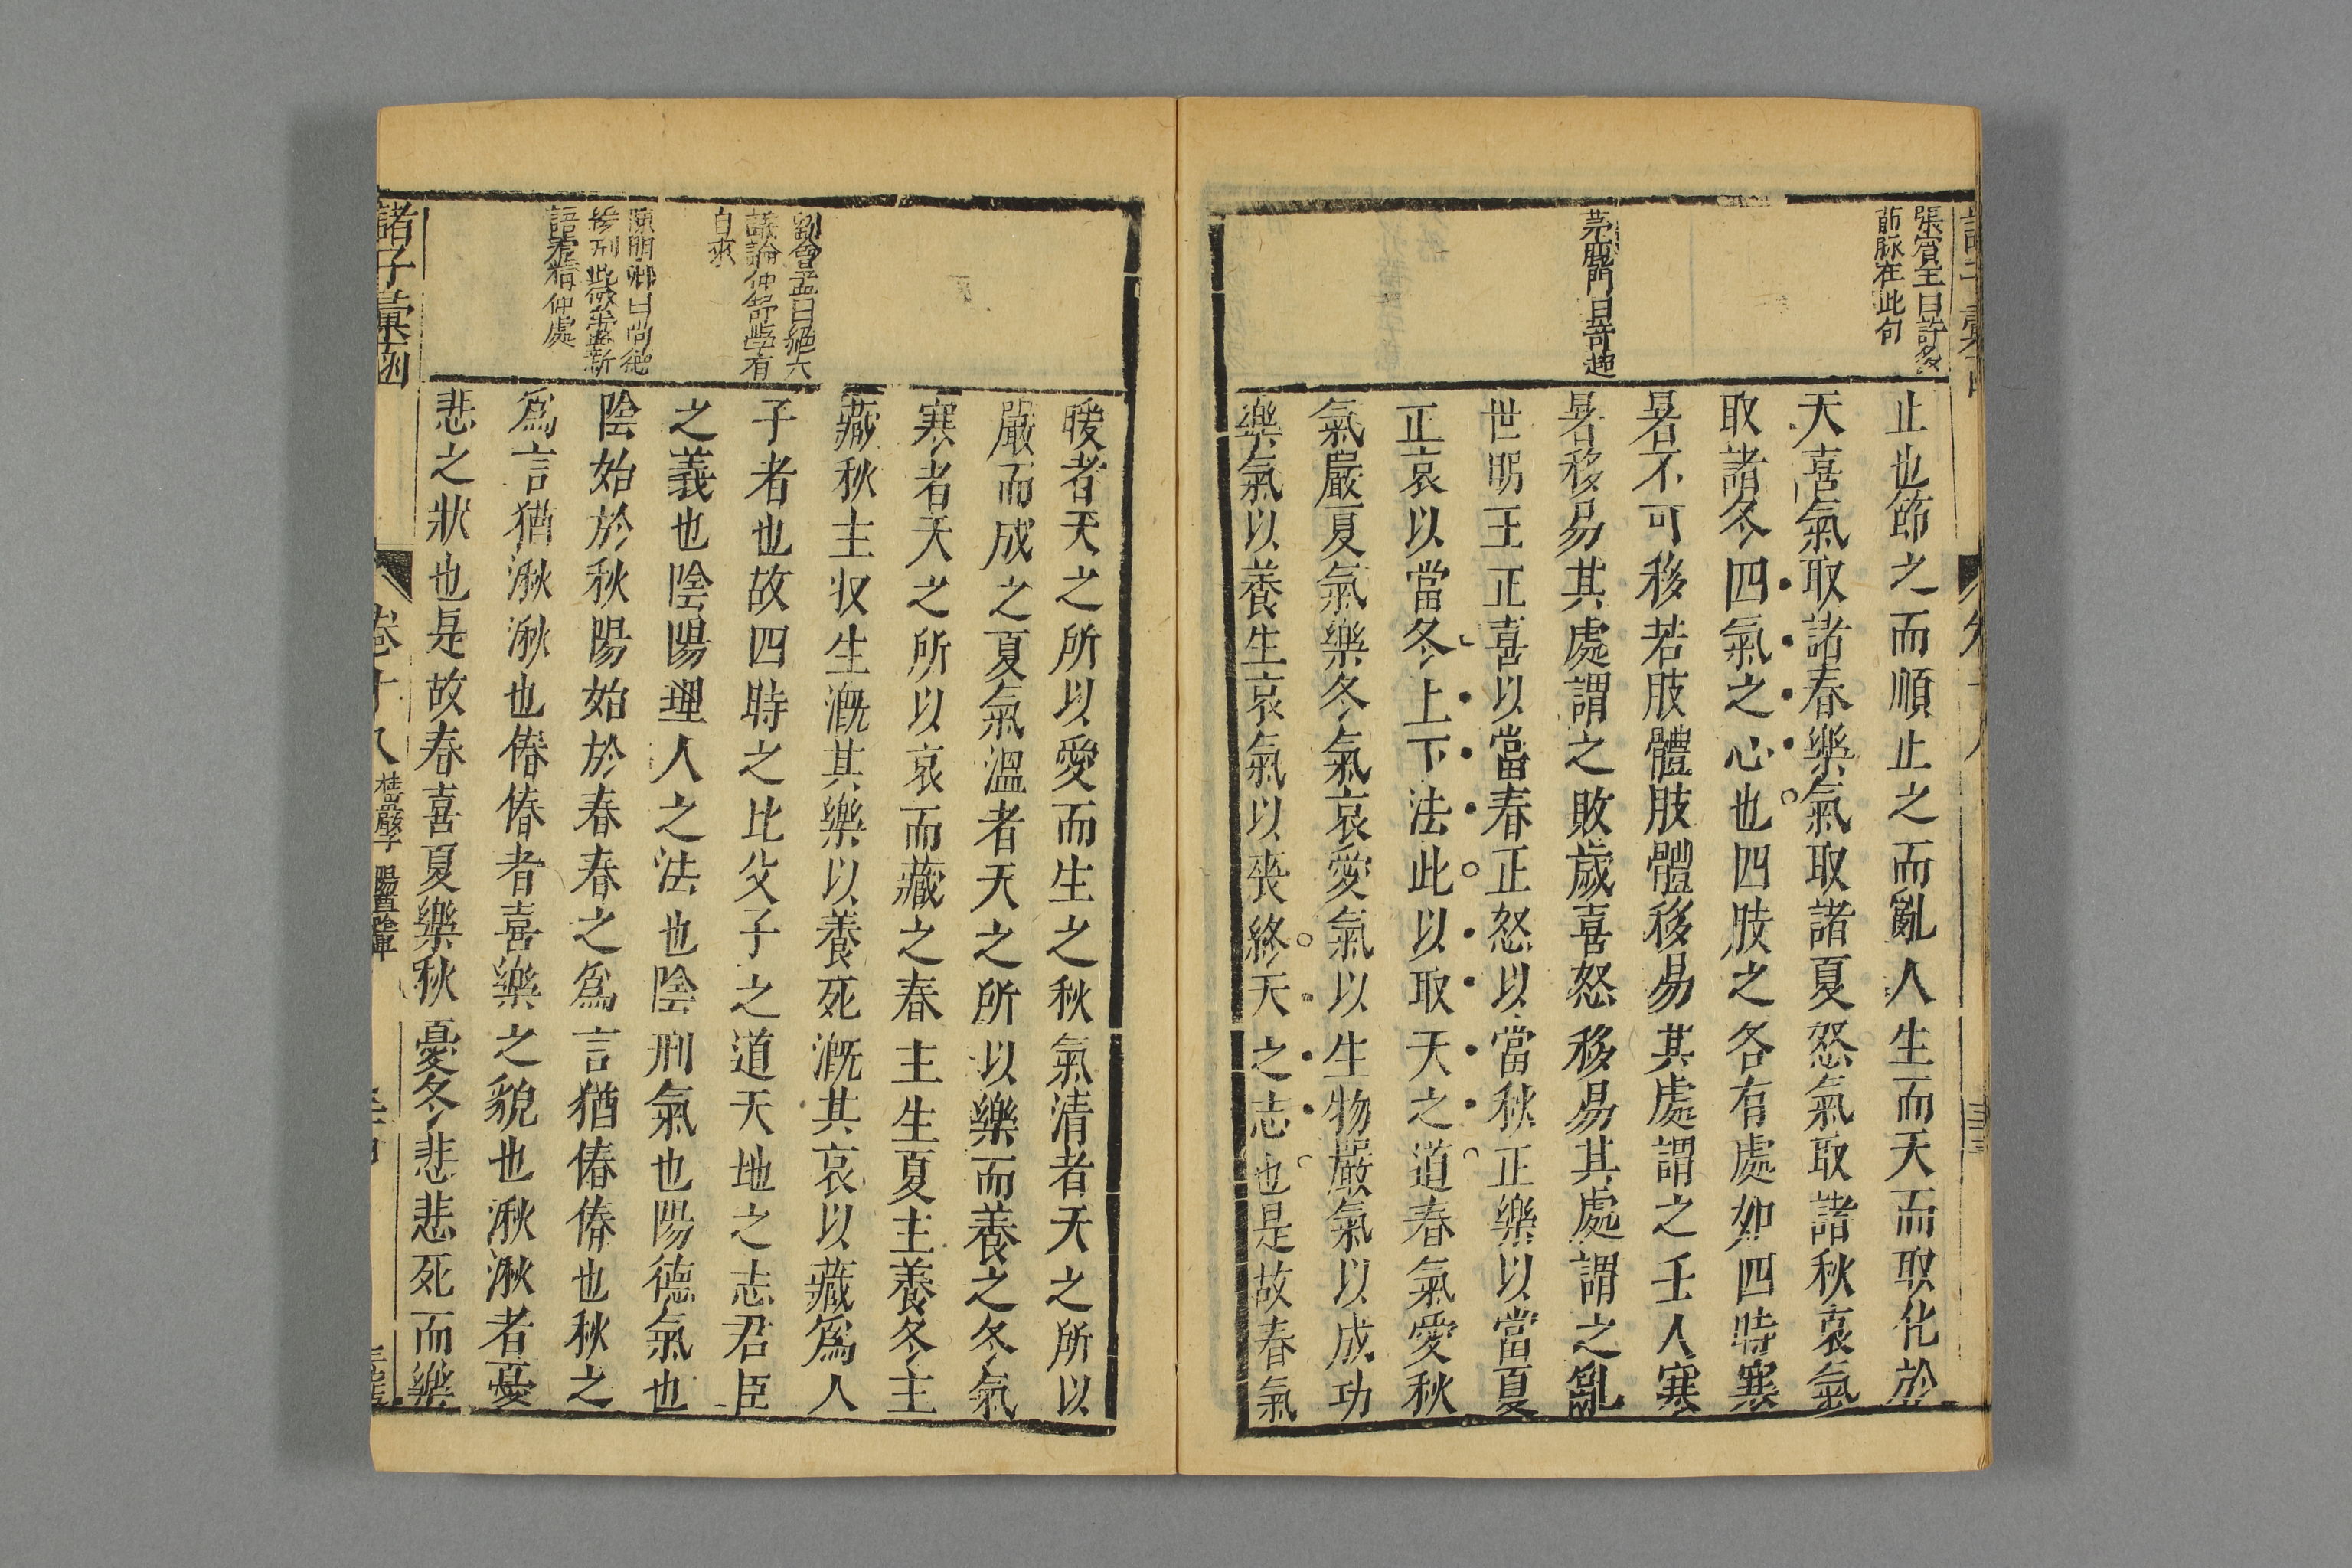 張賓王曰許多
莭脉在此句
茅鹿門曰奇趣
止也節之而順止之而亂人生而天而取化於
天喜氣取諸春樂氣取諸夏怒氣取諸秋哀氣
取諸冬四氣之心也四肢之各有處如四時寒
暑不可移若肢體肢體移易其處謂之壬人寒
暑移易其處謂之敗歲喜怒移易其處謂之亂
世明王正喜以當春正怒以當秋正樂以當夏
正哀以當冬上下法此以取天之道春氣愛秋
氣嚴夏氣樂冬氣哀愛氣以生物嚴氣以成功
樂氣以養生哀氣以喪終天之志也是故春氣
劉會孟曰絕大
議論仲舒學有
自來
陳明卿曰尚德
緩刑此等
語處猜仲處
暖者天之所以愛而生之秋氣清者天之所以
嚴而成之夏氣溫者天之所以樂而養之冬氣
寒者天之所以哀而藏之春主生夏主養冬主
藏秋主收生溉其樂以養死溉其哀以藏為人
子者也故四時之比父子之道天地之志君臣
之義也陰陽理人之法也陰刑氣也陽德氣也
陰始於秋陽始於春春之為言猶偆偆也秋之
為言猶湫湫也偆偆者喜樂之貌也湫湫者憂
悲之狀也是故春喜夏樂秋憂冬悲悲死而樂
諸子彙函
卷十八
桂巖子
陽尊陰卑